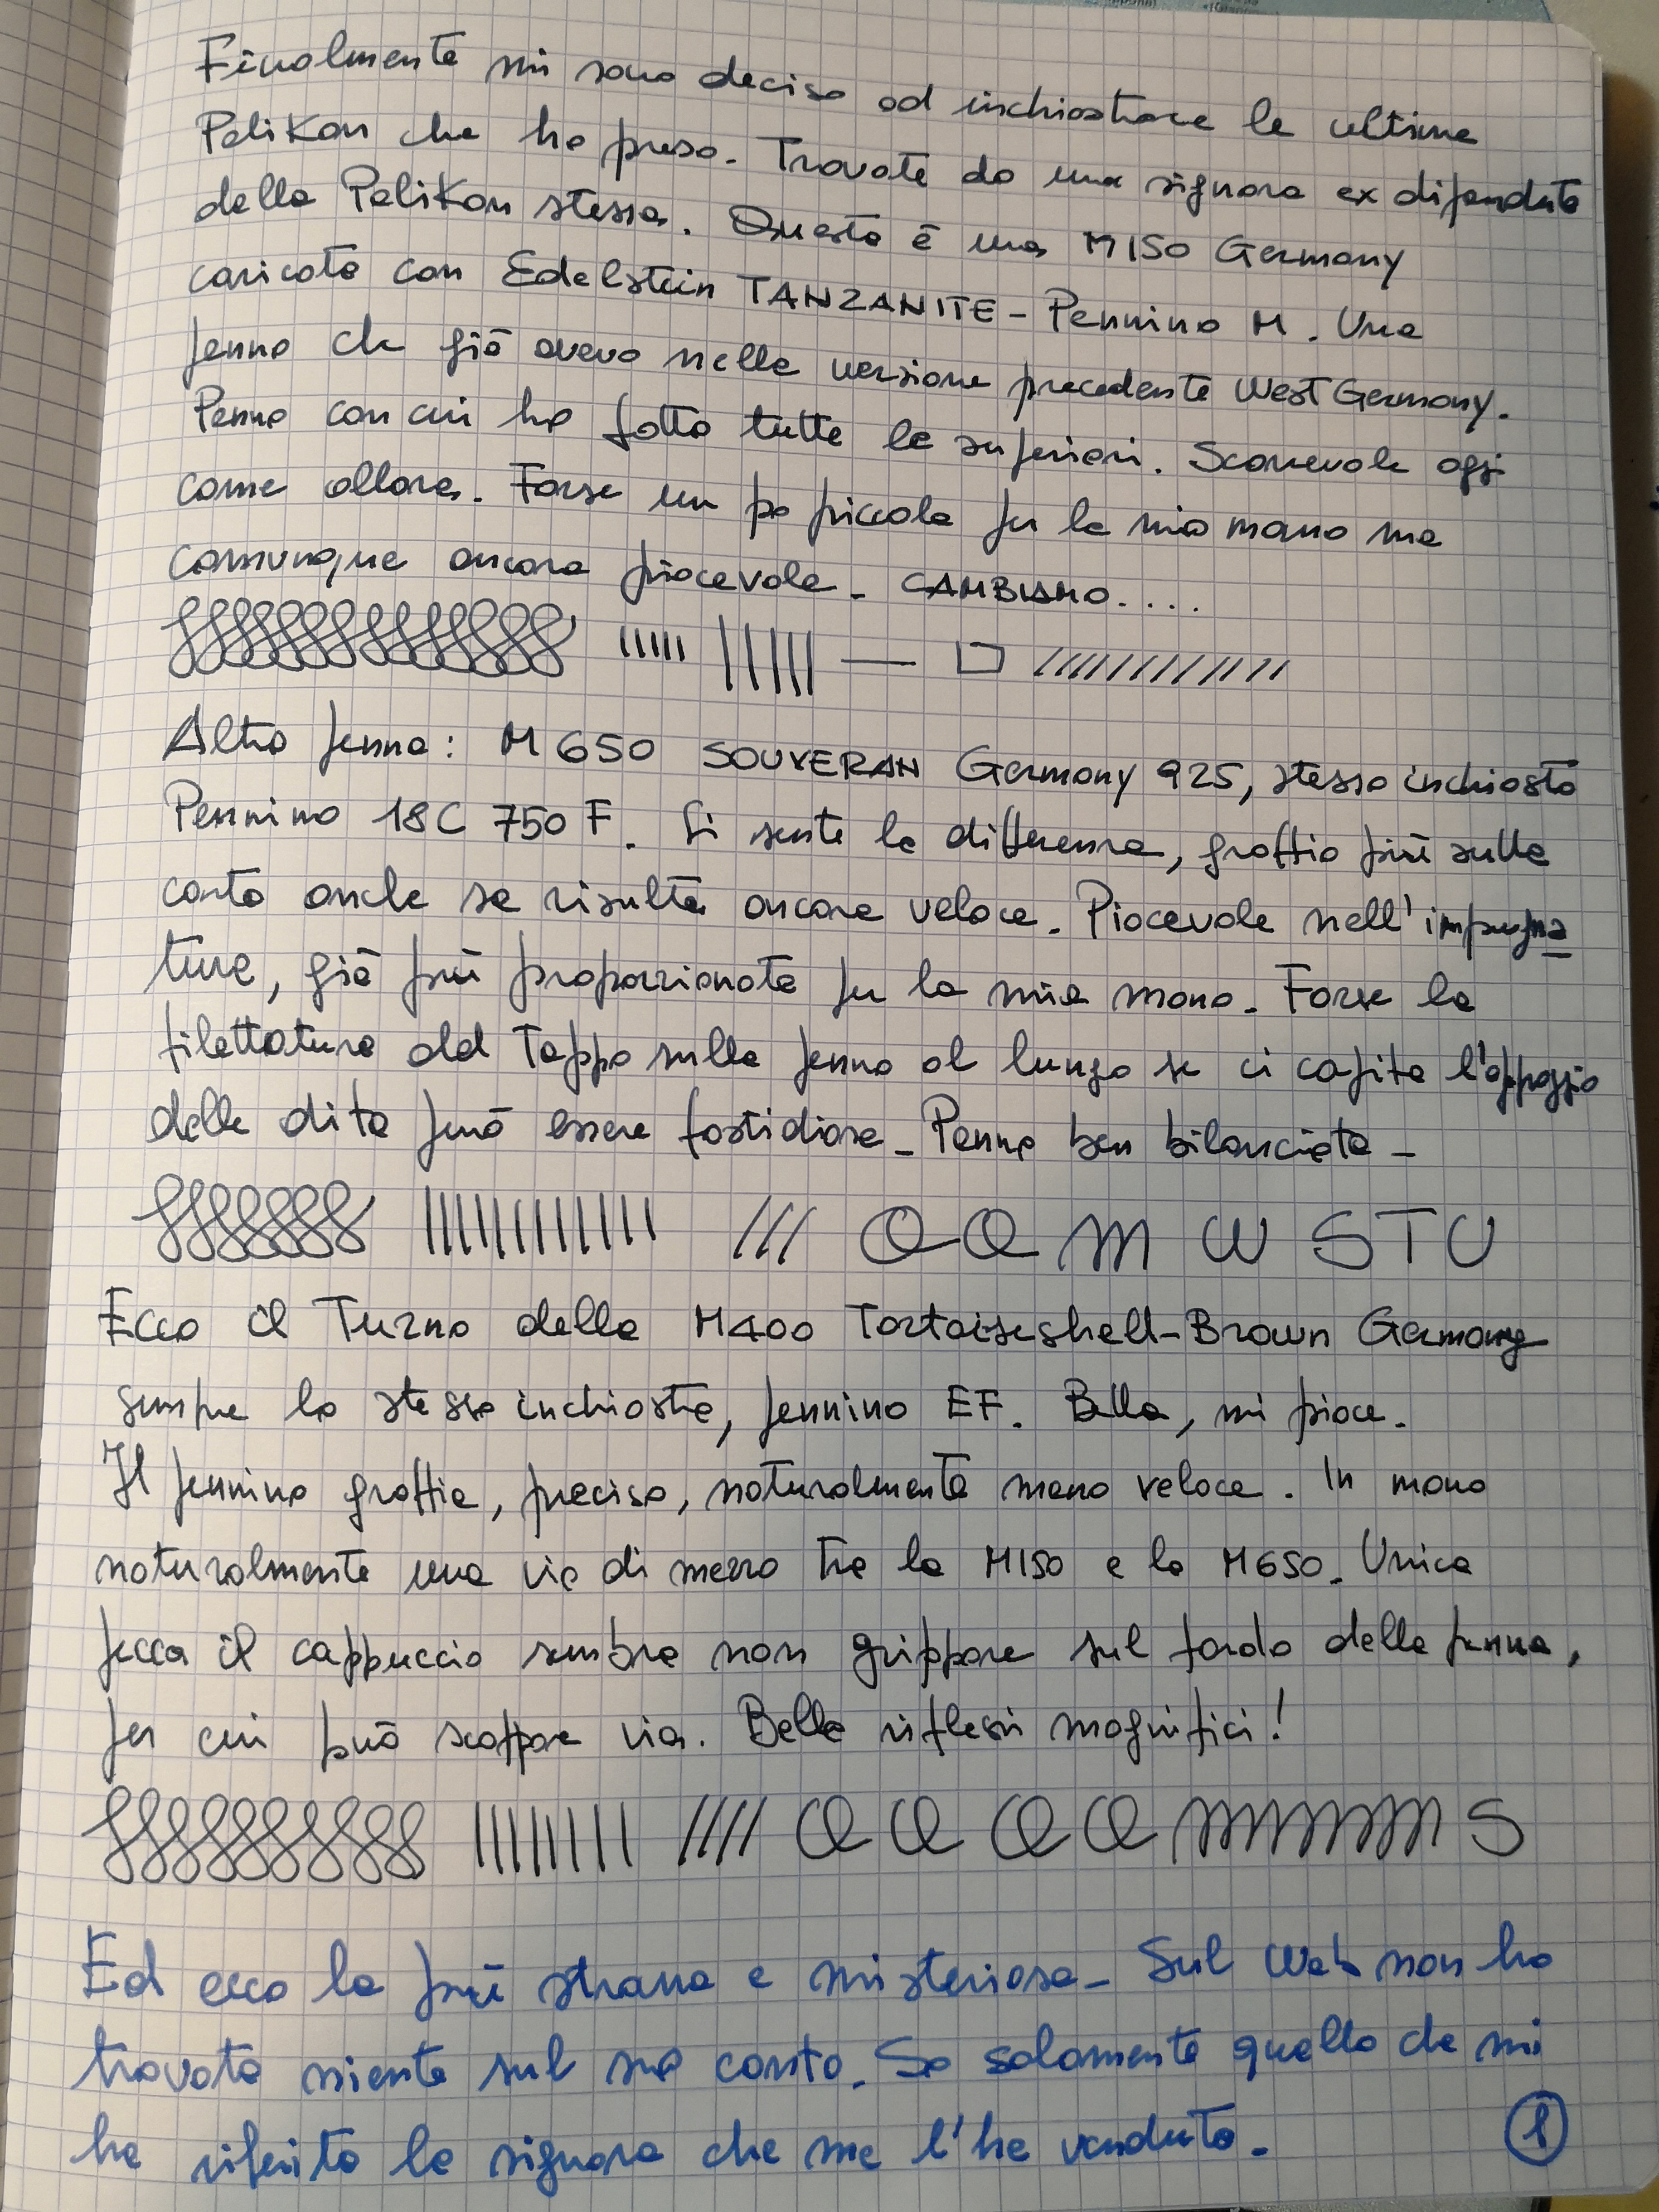 Finalmente mi sono deciso ad inchiostrare le ultime
Pelikan che ho preso. Trovate da una signora ex dipendente
della Pelikan stessa. Questa è una M150 Germany
caricata con Edelstein TANZANITE - Pennino M. Una
penna che già avevo nella versione precedente West Germany.
Penna con cui ho fatto tutte le superiori. Scorrevole oggi
come allora. Forse un po piccola per la mia mano ma
comunque ancora piacevole - CAMBIAMO....
Altra penna: M650 SOUVERAN Germany 925, stesso inchiostro
Pennino 18C 750 F. Si sente la differenza, graffia più sulla
carta anche se risulta ancora veloce. Piacevole nell'impugna
tura, già più proporzionata per la mia mano. Forse la
filettatura del Tappo sulla penna al lungo se ci capita l'appoggio
delle dita può essere fastidiosa - Penna ben bilanciata -
/// Q Q M W S T U
Ecco il Turno della M400 Tortoiseshell-Brown Germany
sempre lo stesso inchiostro, pennino EF. Bella, mi piace.
Il pennino graffia, preciso, naturalmente meno veloce. In mano
naturalmente una via di mezzo tra la M150 e la M650. Unica
pecca il cappuccio sembra non grippare sul fondo della penna,
per cui può scappare via. Bella riflessi magnifici!
//// Q Q Q Q mmmmm S
Ed ecco la più strana e misteriosa - Sul Web non ho
trovato niente sul suo conto. So solamente quello che mi
ha riferito la signora che me l'ha venduta.
1